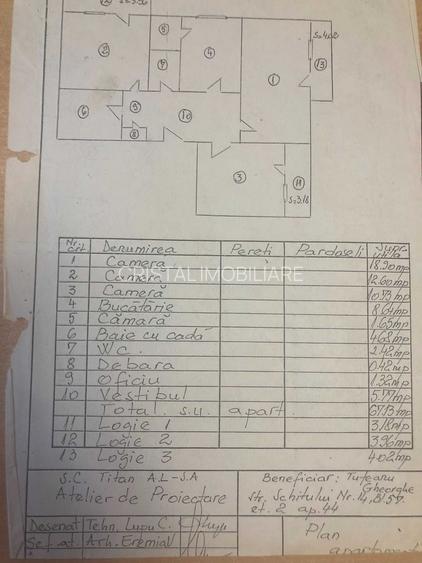 12 S=3.96
5
S=4.02
2
4
1
13
7
6
9
10
8
3
11
S=3.18
Nr. crt. Denumirea Pereți Pardoseli Supr. utilă
1 Cameră 18.90mp
2 Cameră 12.60mp
3 Cameră 10.93mp
4 Bucătărie 8.64mp
5 Cămară 1.65mp
6 Baie cu cadă 4.68mp
7 WC. 2.42mp
8 Debara 0.42mp
9 Oficiu 1.32mp
10 Vestibul 5.77mp
Total s.u. apart. 67.13mp
11 Logie 1 3.18mp
12 Logie 2 3.96mp
13 Logie 3 4.02mp
CRISTAL IMOBILIARE
S.C. Titan A.L-S.A
Atelier de Proiectare
Beneficiar: Tuțeanu
Gheorghe
str. Schitului Nr. 14, Bl 57
et. 2 ap. 44
Desenat Tehn. Lupu C.
Șef at. Arh. Eremia
Plan
apartament